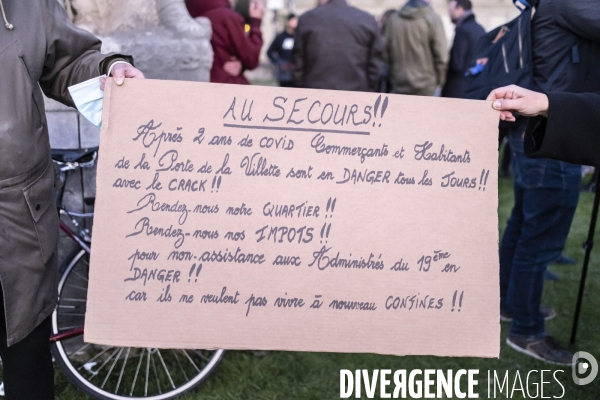 AU SECOURS!!
Après 2 ans de COVID Commerçants et Habitants
de la Porte de la Villette sont en DANGER tous les JOURS!!
avec le CRACK!!
Rendez-nous notre QUARTIER!!
Rendez-nous nos IMPOTS!!
pour non-assistance aux Administrés du 19ème en
DANGER!!
car ils ne veulent pas vivre à nouveau CONFINES!!
DIVERGENCE IMAGES